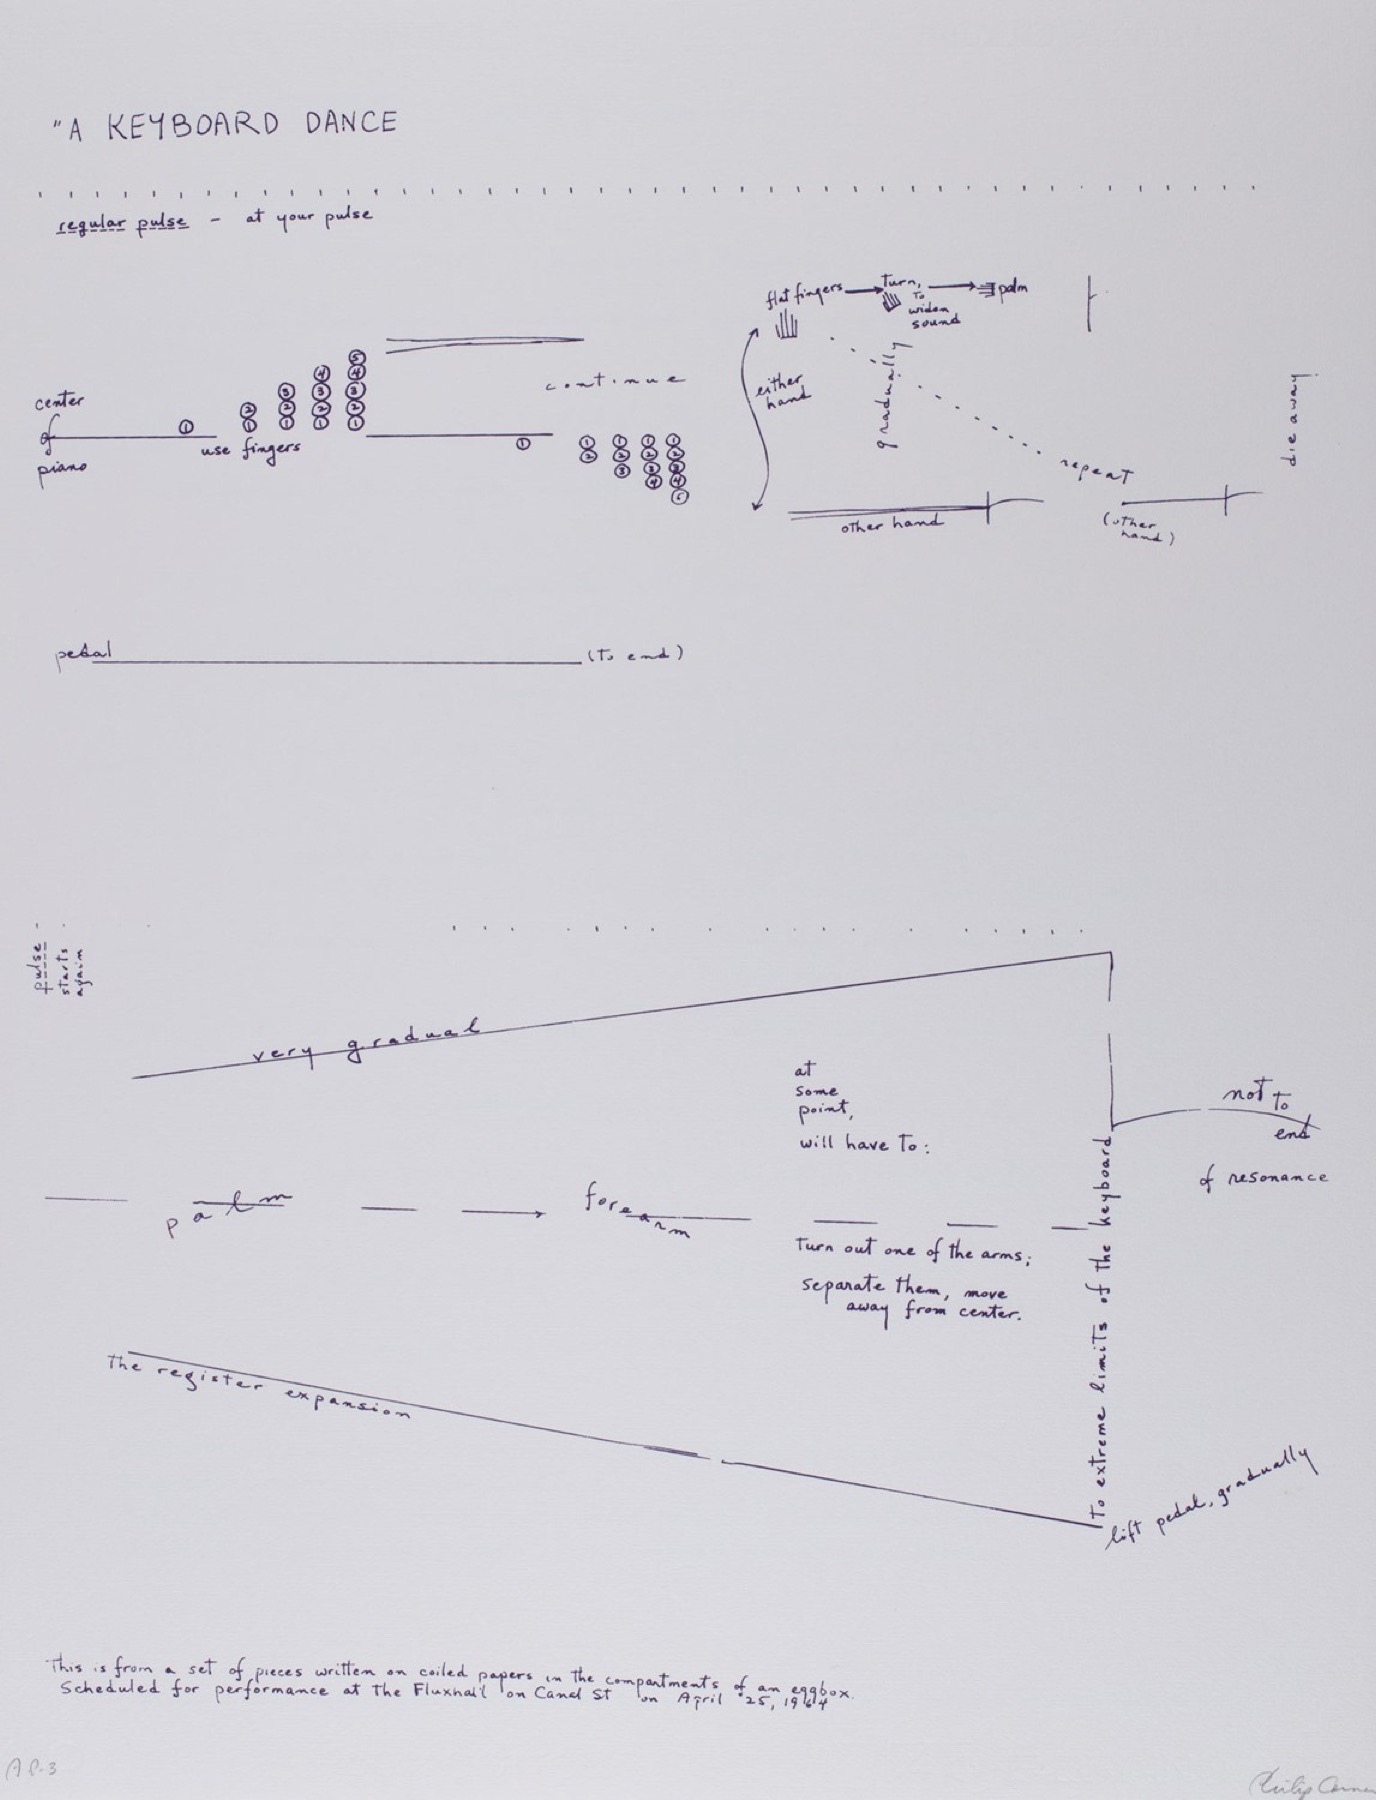 "A KEYBOARD DANCE
regular pulse - at your pulse
center
of
piano
①
②
①
③
②
①
④
③
②
①
⑤
④
③
②
①
use fingers
continue
①
①
②
①
②
③
①
②
③
④
①
②
③
④
⑤
flat fingers
Turn,
To
widen
sound
palm
either
hand
gradually
repeat
other hand
(other
hand)
die away
pedal
(To end)
pulse
starts
again
very gradual
at
some
point,
will have To:
palm
forearm
Turn out one of the arms;
separate them, move
away from center.
The register expansion
To extreme limits of the keyboard
not To
end
of resonance
lift pedal, gradually
This is from a set of pieces written on coiled papers in the compartments of an eggbox.
Scheduled for performance at The Fluxhall on Canal St on April 25, 1964
AP-3
Philip Corner